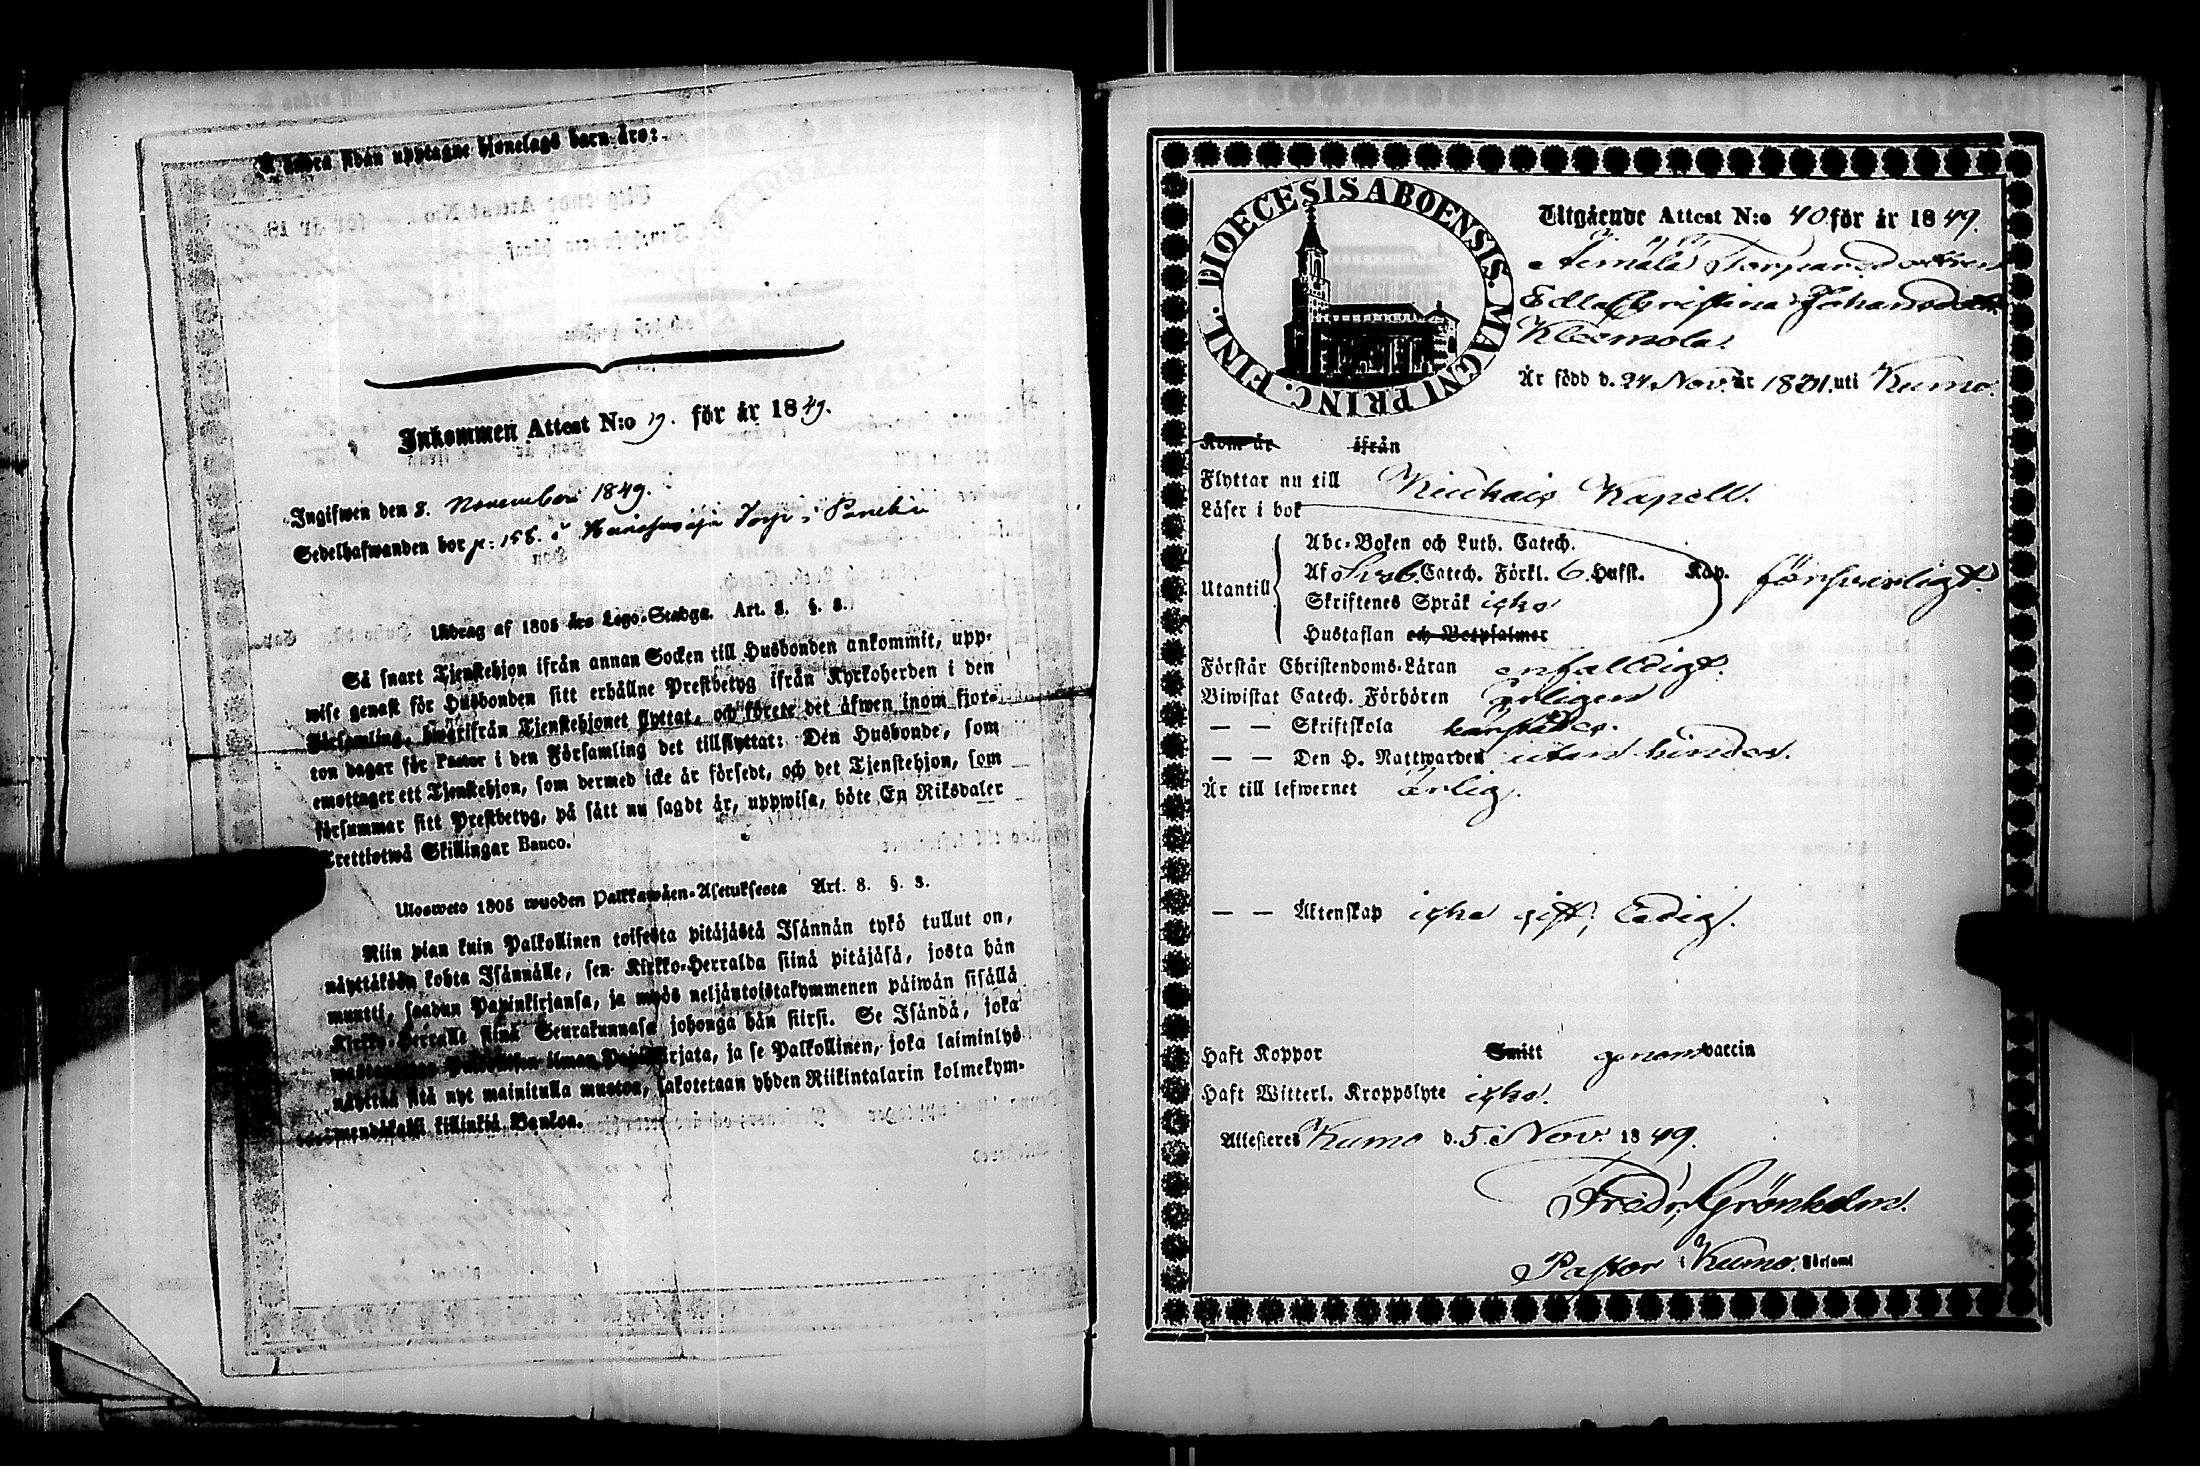 Å andra sidan upptagne Hjonelags barn äro:
Inkommen Attest N:o 19. för år 1849.
Ingifwen den 8. November 1849.
Sedelhafwanden bor p: 158. i Torp i Paneli
Utdrag af 1805 års Lego-Stadga. Art. 8. §. 3.
Så snart Tjenstehjon ifrån annan Socken till Husbonden ankommit, upp-
wise genast för Husbonden sitt erhållne Prestbetyg ifrån Kyrkoherden i den
Församling, hwarifrån Tjenstehjonet flyttat, och förete det äfwen inom fjor-
ton dagar för Pastor i den Församling det tillflyttat: Den Husbonde, som
emottager ett Tjenstehjon, som dermed icke är försedt, och det Tjenstehjon, som
försummar sitt Prestbetyg, på sätt nu sagdt är, uppwisa, böte En Riksdaler
Trettiotwå Skillingar Banco.
Ulosweto 1805 wuoden Palkkawäen-Asetuksesta Art. 8. §. 3.
Niin pian kuin Palkollinen toisesta pitäjästä Isännän tykö tullut on,
näyttäköön kohta Isännälle, sen Kirkko-Herralda siinä pitäjäsä, josta hän
muutti, saadun Papinkirjansa, ja myös neljäntoistakymmenen päiwän sisällä
Kirkko-Herralle siinä Seurakunnasa johonga hän siirsi. Se Isändä, joka
wastanottaa Palkollisen ilman Papinkirjata, ja se Palkollinen, joka laiminlyö
näyttää sitä nyt mainitulla muotoa, sakotetaan yhden Riikintalarin kolmekym-
mendäkaksi killinkiä Bankoa.
DIOECESIS ABOENSIS. MAGNI PRINC. FINL.
Utgående Attest N:o 40 för år 1849.
Äimälä Torparedottren
Edla Christina Johansdotter
Kleemola.
Är född d. 24 Nov. år 1831. uti Kumo.
Kom år ifrån
Flyttar nu till Kiukais Kapell.
Läser i bok
Utantill
Abc-Boken och Luth. Catech.
Af Sveb. Catech. Förkl. 6. Hufst. Kap. försvarligt.
Skriftenes Språk icke
Hustaflan och Botpsalmer
Förstår Christendoms-Läran enfalldigt.
Biwistat Catech. Förhören årligen
— — Skriftskola
— — Den H. Nattwarden utan hinder.
Är till lefwernet ärlig.
— — Äktenskap icke gift, ledig.
Haft Koppor Smitt genom vaccin
Haft Witterl. Kroppslyte icke.
Attesteres Kumo d. 5. Nov. 1849.
Fredr. Grönholm.
Pastor i Kumo. Församl